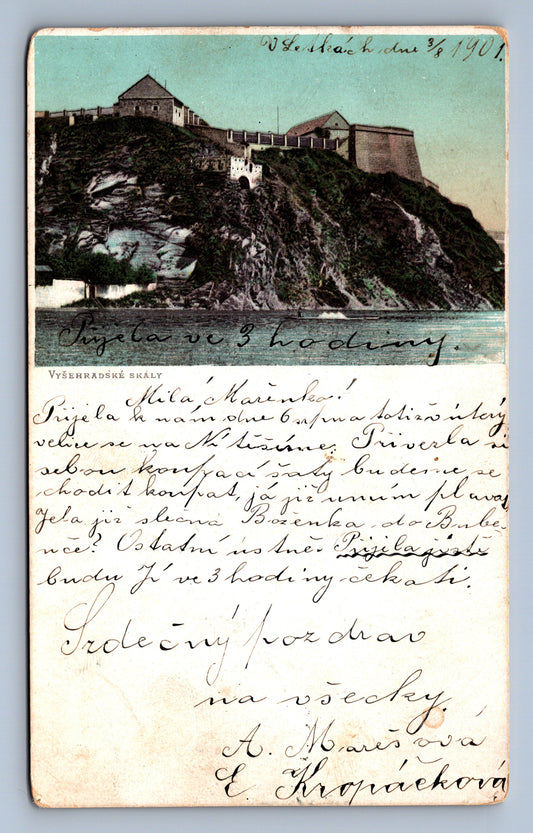 V Letkách dne 3/8 1901.
Přijela ve 3 hodiny.
VYŠEHRADSKÉ SKÁLY
Milá Mařenko!
Přijela k nám dne 6 srpna totiž v úterý
velice se na Ní těšíme. Přivezla si
sebou koupací šaty budeme se
chodit koupat, já již umím plavat
Jela již slečna Boženka do Bube-
nče? Ostatní ústně. Přijela jistě
budu Jí ve 3 hodiny čekati.
Srdečný pozdrav
na všecky.
A. Marešová
E. Kropáčková